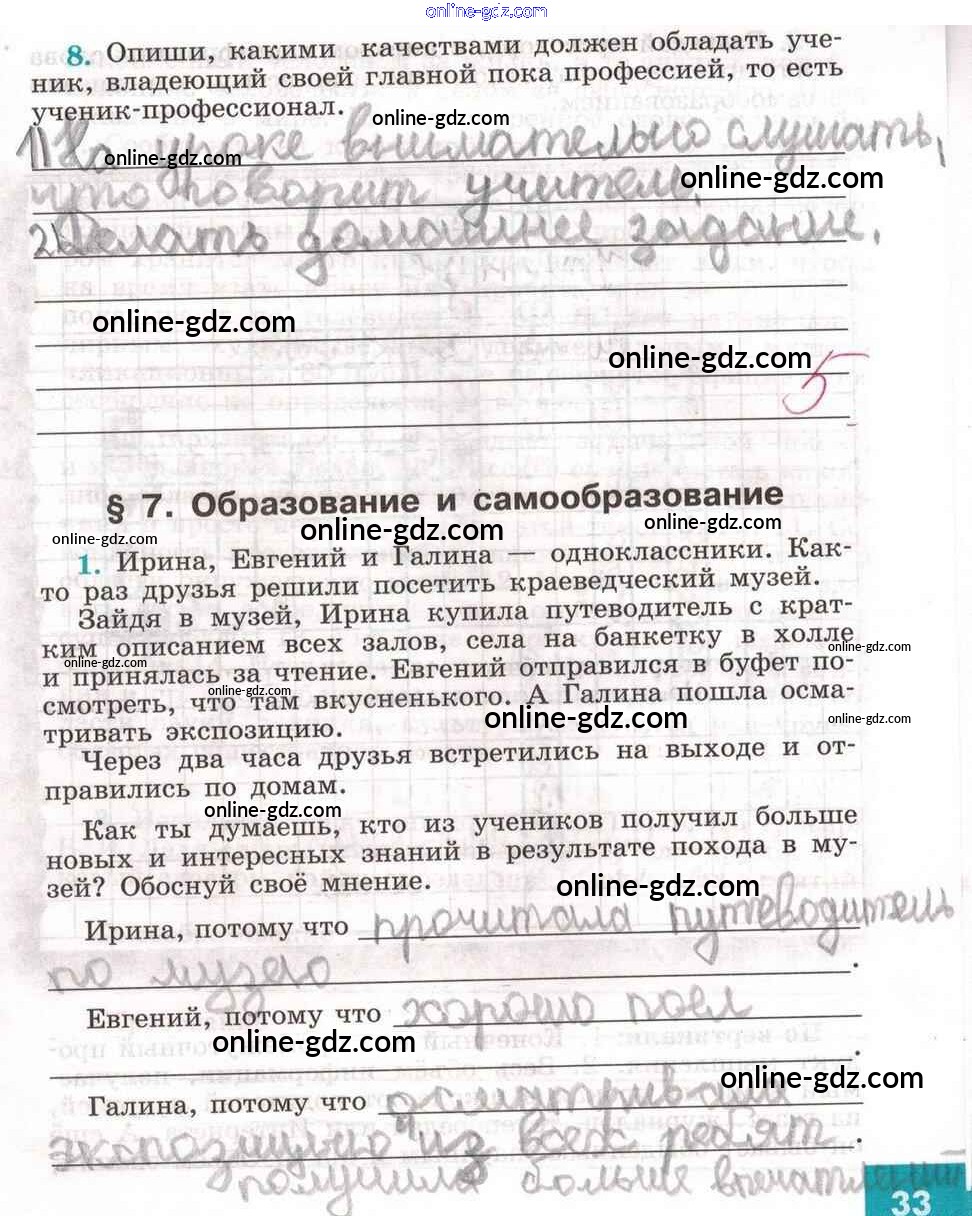 online-gdz.com
8. Опиши, какими качествами должен обладать уче-
ник, владеющий своей главной пока профессией, то есть
ученик-профессионал.
online-gdz.com
1) На уроке внимательно слушать,
online-gdz.com
что говорит учитель.
online-gdz.com
2) Делать домашнее задание.
online-gdz.com
online-gdz.com
5
§ 7. Образование и самообразование
online-gdz.com
online-gdz.com
online-gdz.com
1. Ирина, Евгений и Галина — одноклассники. Как-
то раз друзья решили посетить краеведческий музей.
Зайдя в музей, Ирина купила путеводитель с крат-
ким описанием всех залов, села на банкетку в холле
online-gdz.com
online-gdz.com
и принялась за чтение. Евгений отправился в буфет по-
online-gdz.com
смотреть, что там вкусненького. А Галина пошла осма-
online-gdz.com
online-gdz.com
тривать экспозицию.
Через два часа друзья встретились на выходе и от-
правились по домам.
online-gdz.com
Как ты думаешь, кто из учеников получил больше
новых и интересных знаний в результате похода в му-
зей? Обоснуй своё мнение.
online-gdz.com
Ирина, потому что прочитала путеводитель
по музею.
Евгений, потому что хорошо поел
online-gdz.com
.
online-gdz.com
Галина, потому что осматривала
экспозицию и из всех ребят.
получила больше впечатлений
33